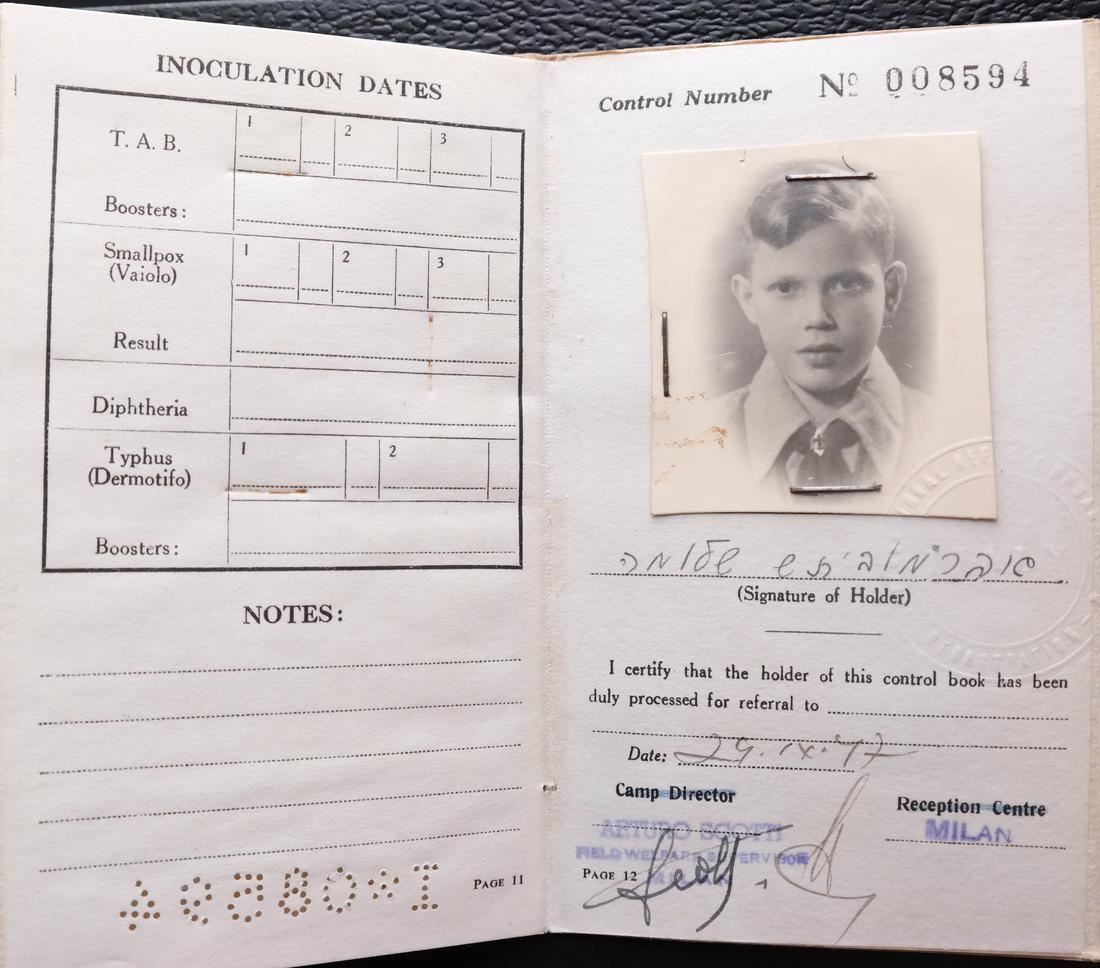 INOCULATION DATES
T. A. B. 1 2 3
Boosters:
Smallpox
(Vaiolo) 1 2 3
Result
Diphtheria
Typhus
(Dermotifo) 1 2
Boosters:
NOTES:
I*08594
PAGE 11
Control Number Nº 008594
אברמוביתש שלומה
(Signature of Holder)
I certify that the holder of this control book has been
duly processed for referral to
Date: 29.IX.47
Camp Director
Reception Centre
ARTURO SCOTTI
MILAN
FIELD WELFARE SUPERVISOR
PAGE 12